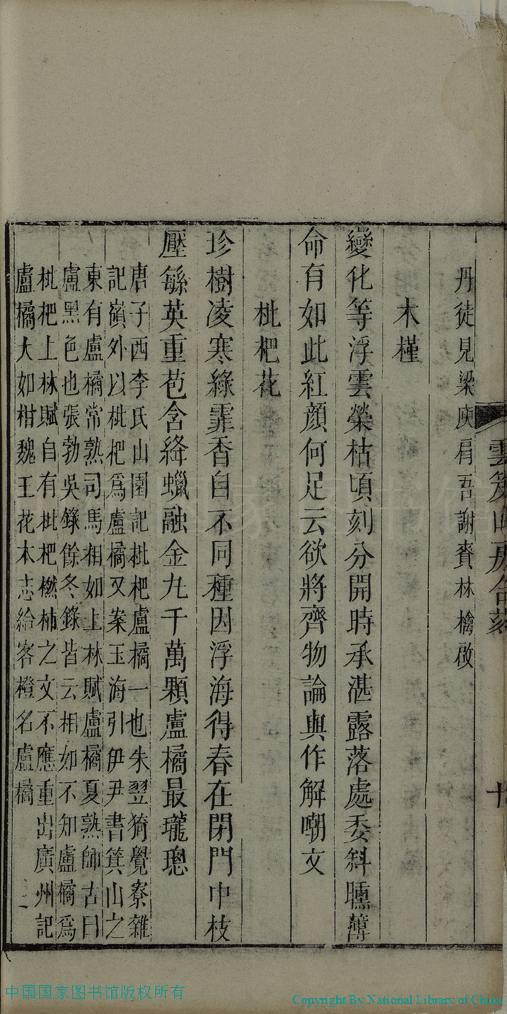 丹徒見梁庾肩吾謝賚林檎啟
木槿
變化等浮雲榮枯頃刻分開時承湛露落處委斜曛薄
命有如此紅顏何足云欲將齊物論與作解嘲文
枇杷花
珍樹凌寒綠霏香自不同種因浮海得春在閉門中枝
壓緐英重苞含絳蠟融金丸千萬顆盧橘最瓏璁
唐子西李氏山園記枇杷盧橘一也朱翌猗覺寮雜
記嶺外以枇杷爲盧橘又案玉海引伊尹書箕山之
東有盧橘常熟司馬相如上林賦盧橘夏熟師古曰
盧黑色也張勃吳錄餘冬錄皆云相如不知盧橘爲
枇杷上林賦自有枇杷橪柿之文不應重出廣州記
盧橘大如柑魏王花木志給客橙名盧橘
中国国家图书馆版权所有
Copyright By National Library of China